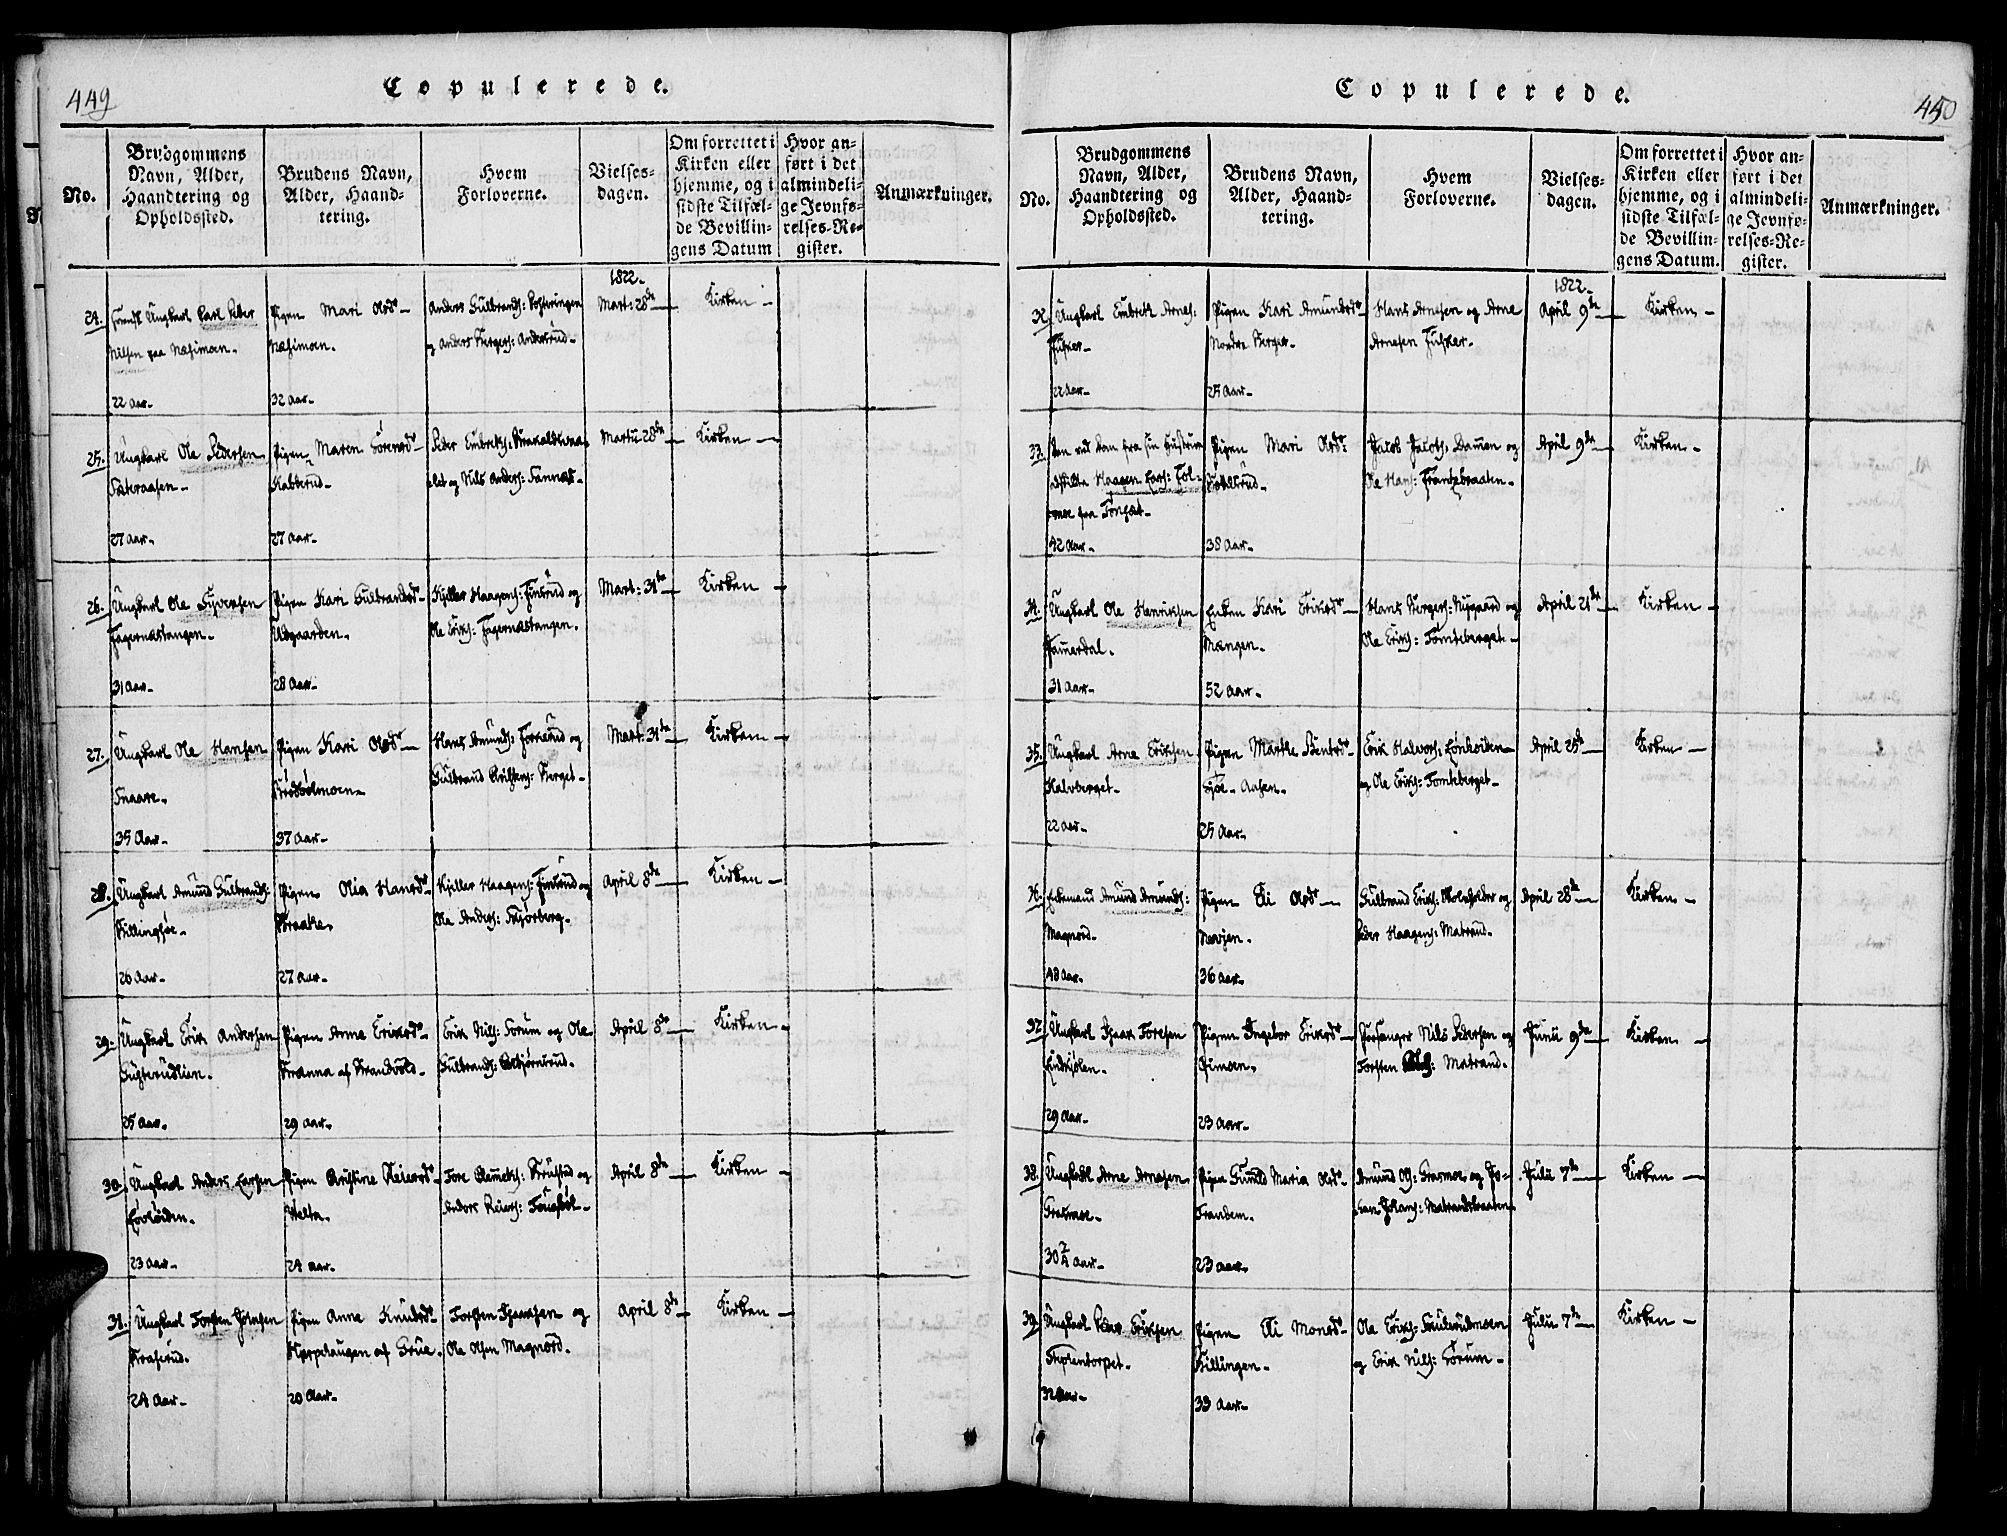 449
Copulerede.
No.
Brudgommens
Navn, Alder,
Haandtering og
Opholdssted.
Brudens Navn,
Alder, Haand-
tering.
Hvem
Forloverne.
Vielses-
dagen.
Om forrettet i
Kirken eller
hjemme, og i
sidste Tilfæl-
de Bevillin-
gens Datum
Hvor an-
ført i det
almindeli-
ge Jevnfø-
relses-Re-
gister.
Anmærkninger.
1822.
24.
Ungkarl Carl Peder
Nilsen paa Næsimoen.
22 Aar.
Pigen Mari Olsdr
Næsimoen.
32 Aar.
Anders Gulbrands:
og Anders Bergers: Anderrud.
Mart: 28de
Kirken
25.
Ungkarl Ole Pedersen
Sæteraasen.
27 Aar.
Pigen Maren Sörensdr
Kabberud.
27 Aar.
Peder Embrets:
og Nils Anders: Sannæs.
Martii 28de
Kirken
26.
Ungkarl Ole Syversen
Fagernæstangen.
31 Aar.
Pigen Kari Gulbrandsdr
Udgaarden.
28 Aar.
Kjeller Haagens: Finsrud og
Ole Eriks: Fagernæstangen.
Mart: 31te
Kirken
27.
Ungkarl Ole Hansen
Snaare.
35 Aar.
Pigen Kari Olsdr
Brødbølmoen.
37 Aar.
Hans Amunds: og
Gulbrand Christens: Berget.
Mart: 31te
Kirken
28.
Ungkarl Amund Gulbrands:
Killingsöe.
26 Aar.
Pigen Olia Hansdr
Braate.
27 Aar.
Kjeller Haagens: Finsrud og
Ole Anders: Skjörberg.
April 8de
Kirken
29.
Ungkarl Erik Andersen
Sigterudlien.
25 Aar.
Pigen Anne Eriksdr
Kranna af Brandvold.
29 Aar.
Erik Nils: Sorum og Ole
Gulbrands:
April 8de
Kirken
30.
Ungkarl Anders Larsen
Lövhöiden.
23 Aar.
Pigen Christine Reiersdr
Velta.
24 Aar.
Tore Clemets: Krustad og
Anders Reiers:
April 8de
Kirken
31.
Ungkarl Torsten Johnsen
Kraserud.
24 Aar.
Pigen Anne Knudsdr
Heppehaugen af Grue.
20 Aar.
Torsten Isaachsen og
Ole Olsen Magnord.
April 8de
Kirken
450
Copulerede.
No.
Brudgommens
Navn, Alder,
Haandtering og
Opholdssted.
Brudens Navn,
Alder, Haand-
tering.
Hvem
Forloverne.
Vielses-
dagen.
Om forrettet i
Kirken eller
hjemme, og i
sidste Tilfæl-
de Bevillin-
gens Datum.
Hvor an-
ført i det
almindeli-
ge Jevnfø-
relses-Re-
gister.
Anmærkninger.
1822.
32.
Ungkarl Embreth Arnes:
Fusker.
22 Aar.
Pigen Kari Amundsdr
Nordre Berger.
24 Aar.
Hans Arnesen og Arne
Arnesen Fusker.
April 9de
Kirken
33.
Den ved Dom fra sin Hustrue
adskilte Haagen Lars:
fra Tongset.
42 Aar.
Pigen Mari Olsdr
38 Aar.
Jacob Jacobs: Dammen og
Ole Hans: Frantzbraaten.
April 9de
Kirken
34.
Ungkarl Ole Henriksen
Jammerdal.
31 Aar.
Enken Kari Eriksdr
Mangen.
52 Aar.
Hans Bergers: Nygaard og
Ole Eriks: Tomteberget.
April 21de
Kirken
35.
Ungkarl Arne Eriksen
Halvberget.
22 Aar.
Pigen Marthe Bentsdr
Sjöe-Aasen.
25 Aar.
Erik Halvors: Lønhoiden
og Ole Eriks: Tomteberget.
April 25de
Kirken
36.
Enkemand Amund Amunds:
Magnord.
48 Aar.
Pigen Eli Olsdr
Nevjen.
36 Aar.
Gulbrand Eriks: og
Peder Haagens: Matrand.
April 28de
Kirken
37.
Ungkarl Isaac Toresen
29 Aar.
Pigen Ingebor Eriksdr
23 Aar.
Forsanger Nils Pedersen og
Torsten Ols: Matrand.
Junii 9de
Kirken
38.
Ungkarl Arne Arnesen
Grasmoe.
30 2/4 Aar.
Pigen Gunild Maria Olsdr
Trandem.
23 Aar.
Amund Ols: Grasmoe og Jo-
han Johans: Matrandsbraaten.
Julii 7de
Kirken
39.
Ungkarl Peder Eriksen
Stephentorpet.
32 Aar.
Pigen Eli Monsdr
Killingen.
33 Aar.
Ole Eriks:
og Erik Nils: Sorum.
Julii 7de
Kirken